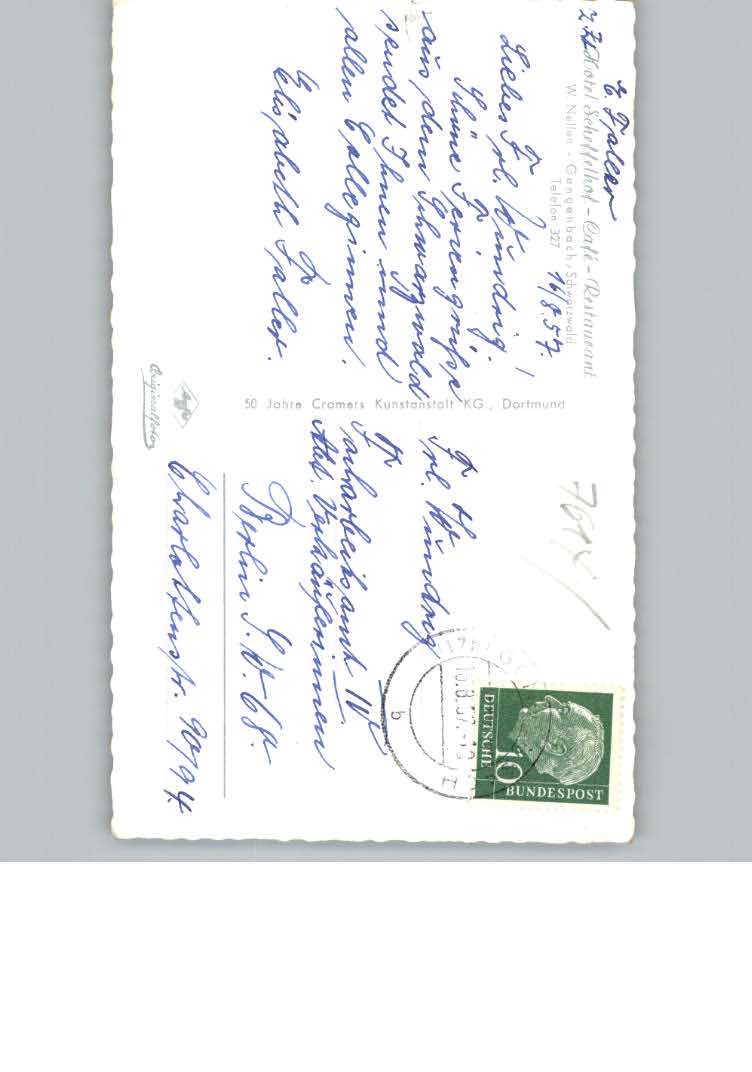 E. Faller
z. Zt. Hotel Scheffelhof - Café - Restaurant
W. Nellen - Gengenbach / Schwarzwald
Telefon 327
16/8.57.
Liebes Frl. Windrig!
Schöne Feriengrüße
aus dem Schwarzwald
sendet Ihnen und
allen Colleginnen.
Elisabeth Faller.
50 Jahre Cramers Kunstanstalt KG., Dortmund
Agfa
Originalfoto
Frl. Windrig
Arbeitsamt IV
Abt. Verkäuferinnen
Berlin S.W. 68.
Charlottenstr. 90/94
16.8.57
b
DEUTSCHE
BUNDESPOST
10